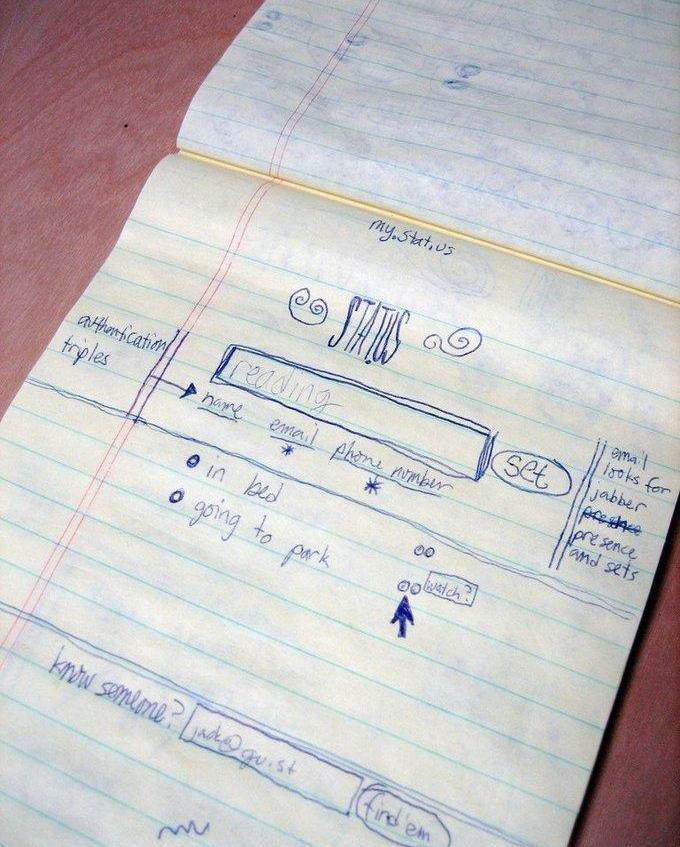 my.stat.us
STAT.US
authentication
triples
reading
name email phone number
set
email
looks for
jabber
presence
presence
and sets
in bed
going to park
watch?
know someone?
jack@gu.st
find 'em